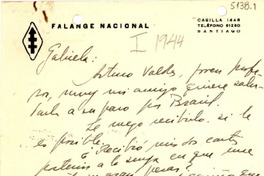 5138.1
FALANGE NACIONAL
CASILLA 1448
TELÉFONO 61260
SANTIAGO
I 1944
Gabriela:
Arturo Valdés, joven profe-
sor, muy mi amigo quiere salu-
darla a su paso por Brasil.
Le ruego recibirlo si le
es posible.
¿Recibió mis dos cartas
a la suya en que me